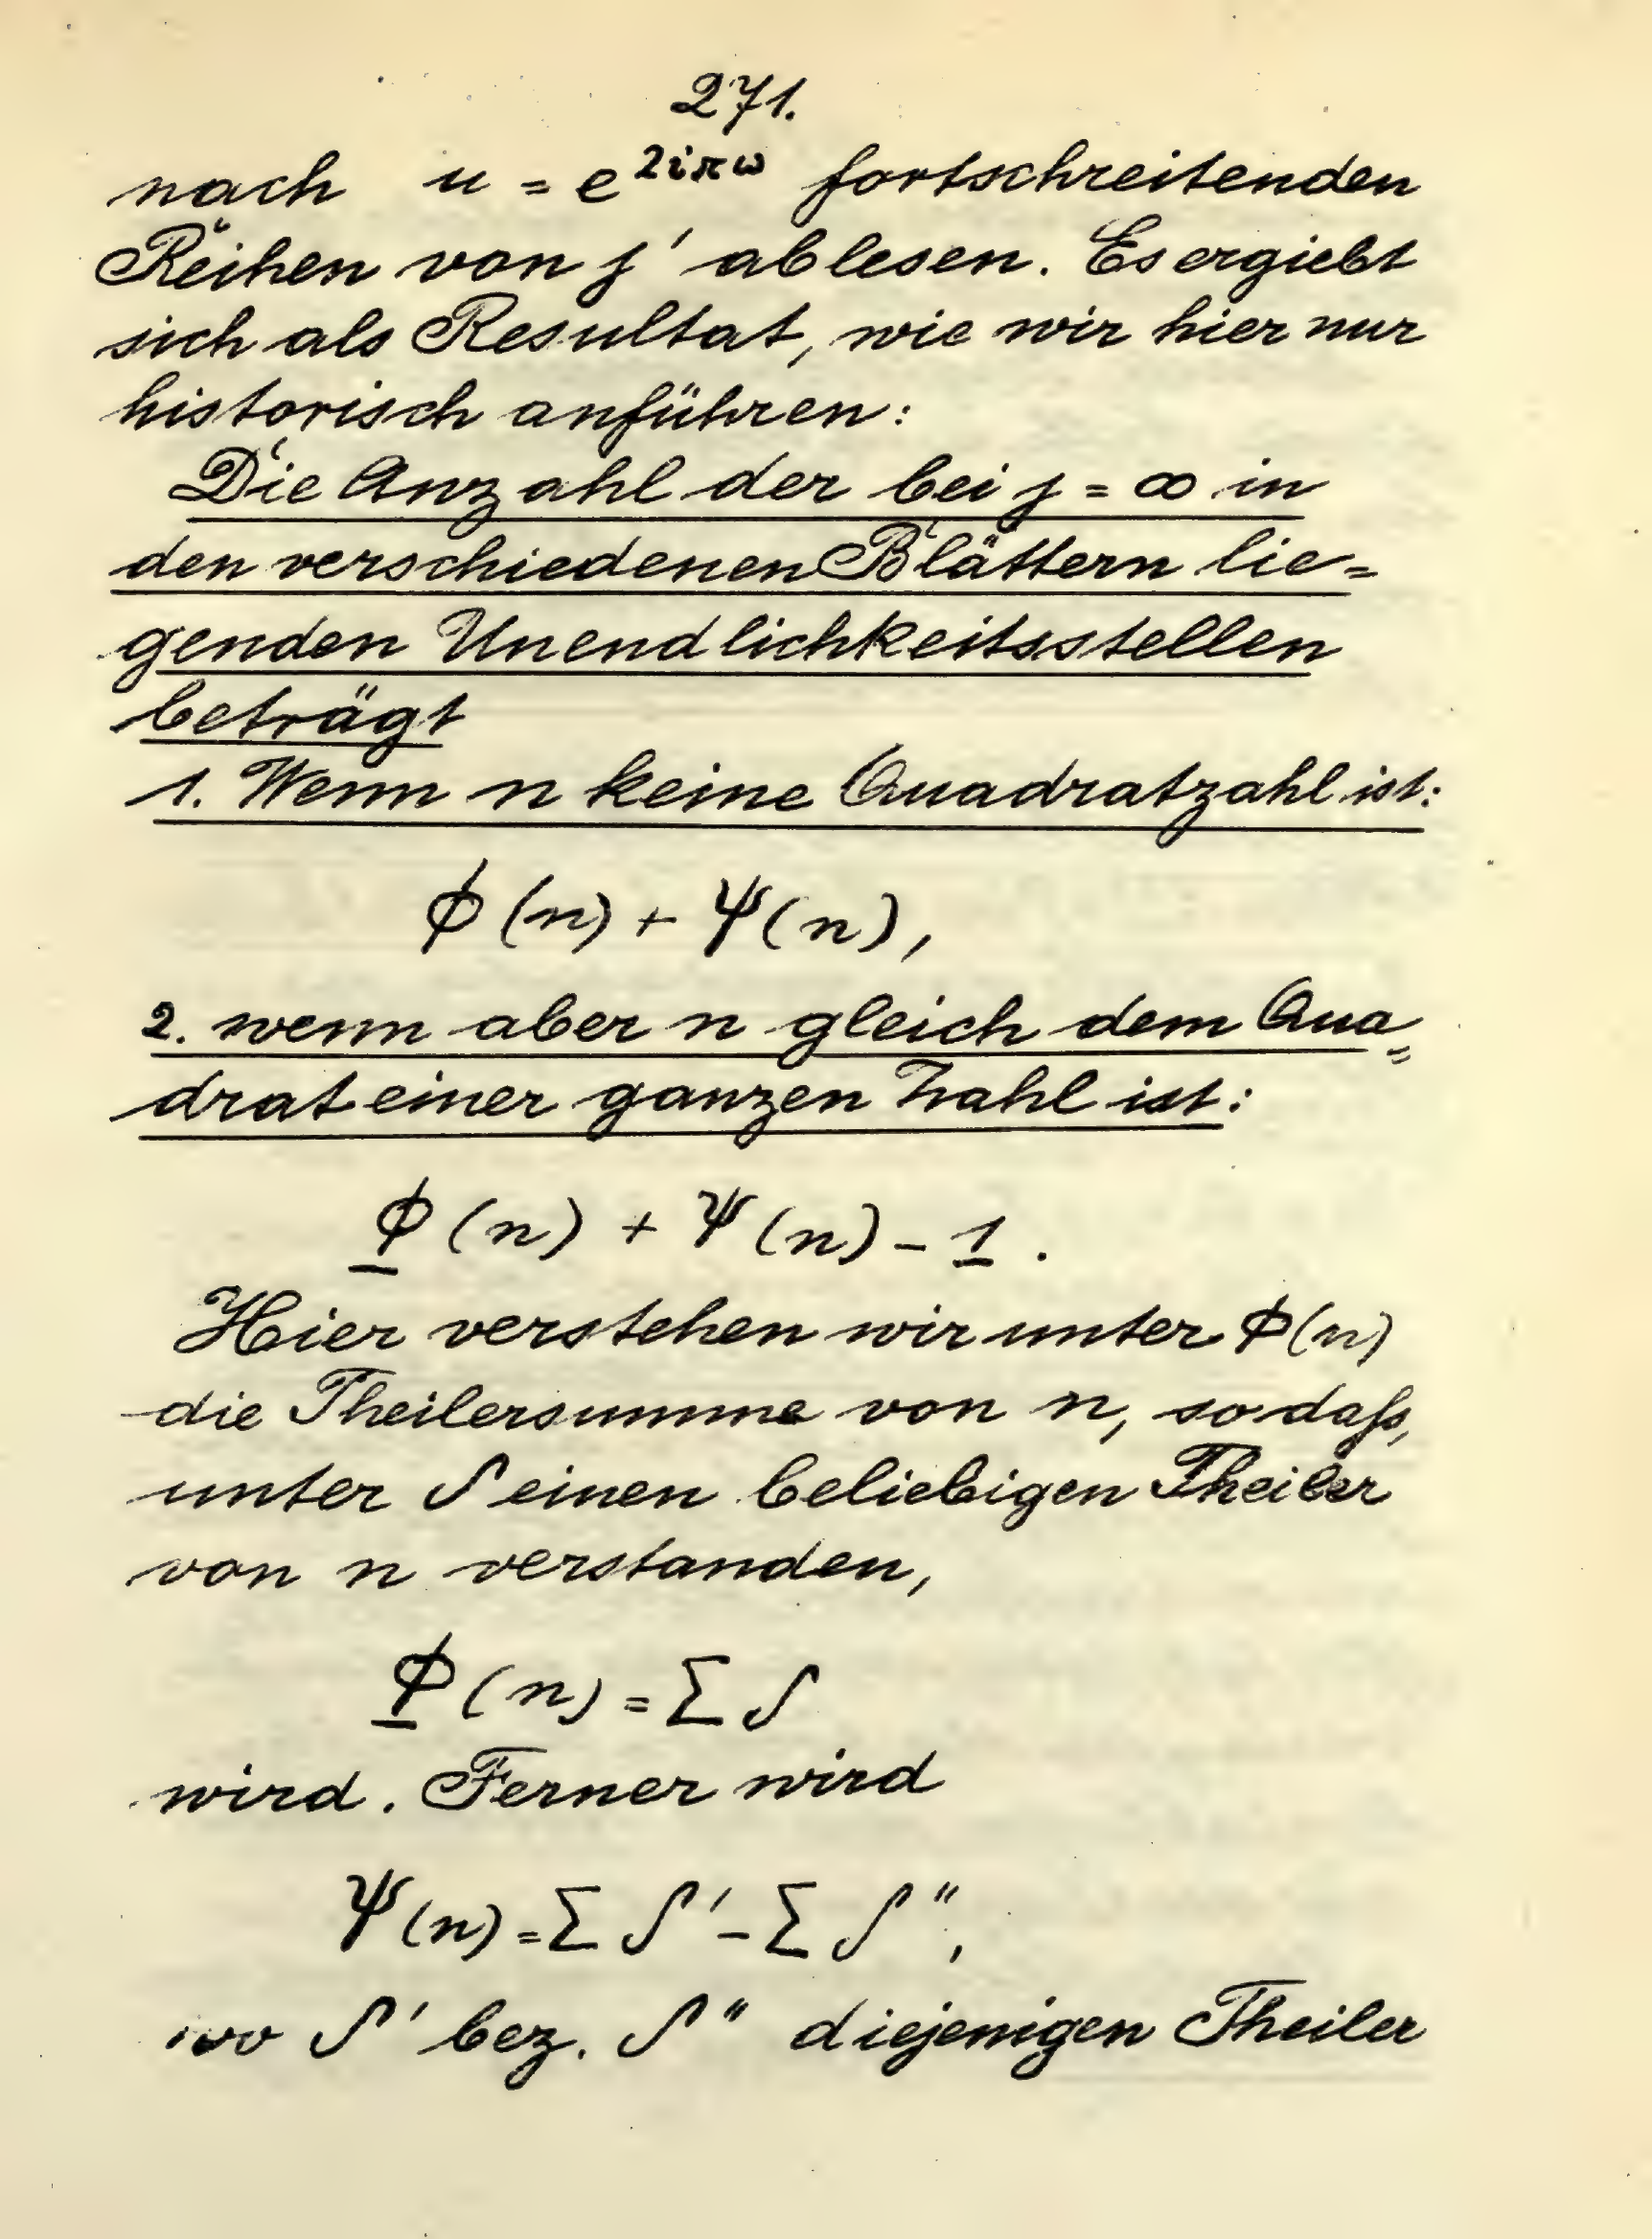 271.
nach u = e^{2iπω} fortschreitenden
Reihen von j' ablesen. Es ergiebt
sich als Resultat, wie wir hier nur
historisch anführen:
Die Anzahl der bei j = ∞ in
den verschiedenen Blättern lie=
genden Unendlichkeitsstellen
beträgt
1. Wenn n keine Quadratzahl ist:
Φ(n) + Ψ(n),
2. wenn aber n gleich dem Qua=
drat einer ganzen Zahl ist:
Φ(n) + Ψ(n) – 1.
Hier verstehen wir unter Φ(n)
die Theilersumme von n, so daß,
unter δ einen beliebigen Theiler
von n verstanden,
Φ(n) = Σ δ
wird. Ferner wird
Ψ(n) = Σ δ' – Σ δ'',
wo δ' bez. δ'' diejenigen Theiler